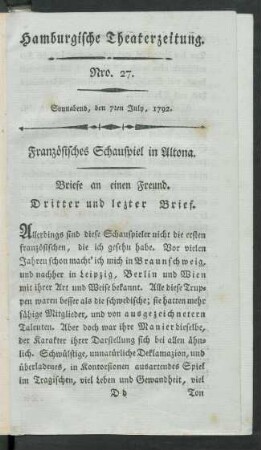 Hamburgische Theaterzeitung.
Nro. 27.
Sonnabend, den 7ten July, 1792.
Französisches Schauspiel in Altona.
Briefe an einen Freund.
Dritter und lezter Brief.
Allerdings sind diese Schauspieler nicht die ersten
französischen, die ich gesehn habe. Vor vielen
Jahren schon macht' ich mich in Braunschweig,
und nachher in Leipzig, Berlin und Wien
mit ihrer Art und Weise bekannt. Alle diese Trup-
pen waren besser als die schwedische; sie hatten mehr
fähige Mitglieder, und von ausgezeichnetern
Talenten. Aber doch war ihre Manier dieselbe,
der Karakter ihrer Darstellung sich bei allen ähn-
lich. Schwülstige, unnatürliche Deklamazion, und
überladenes, in Kontorsionen ausartendes Spiel
im Tragischen, viel Leben und Gewandheit, viel
D d Ton